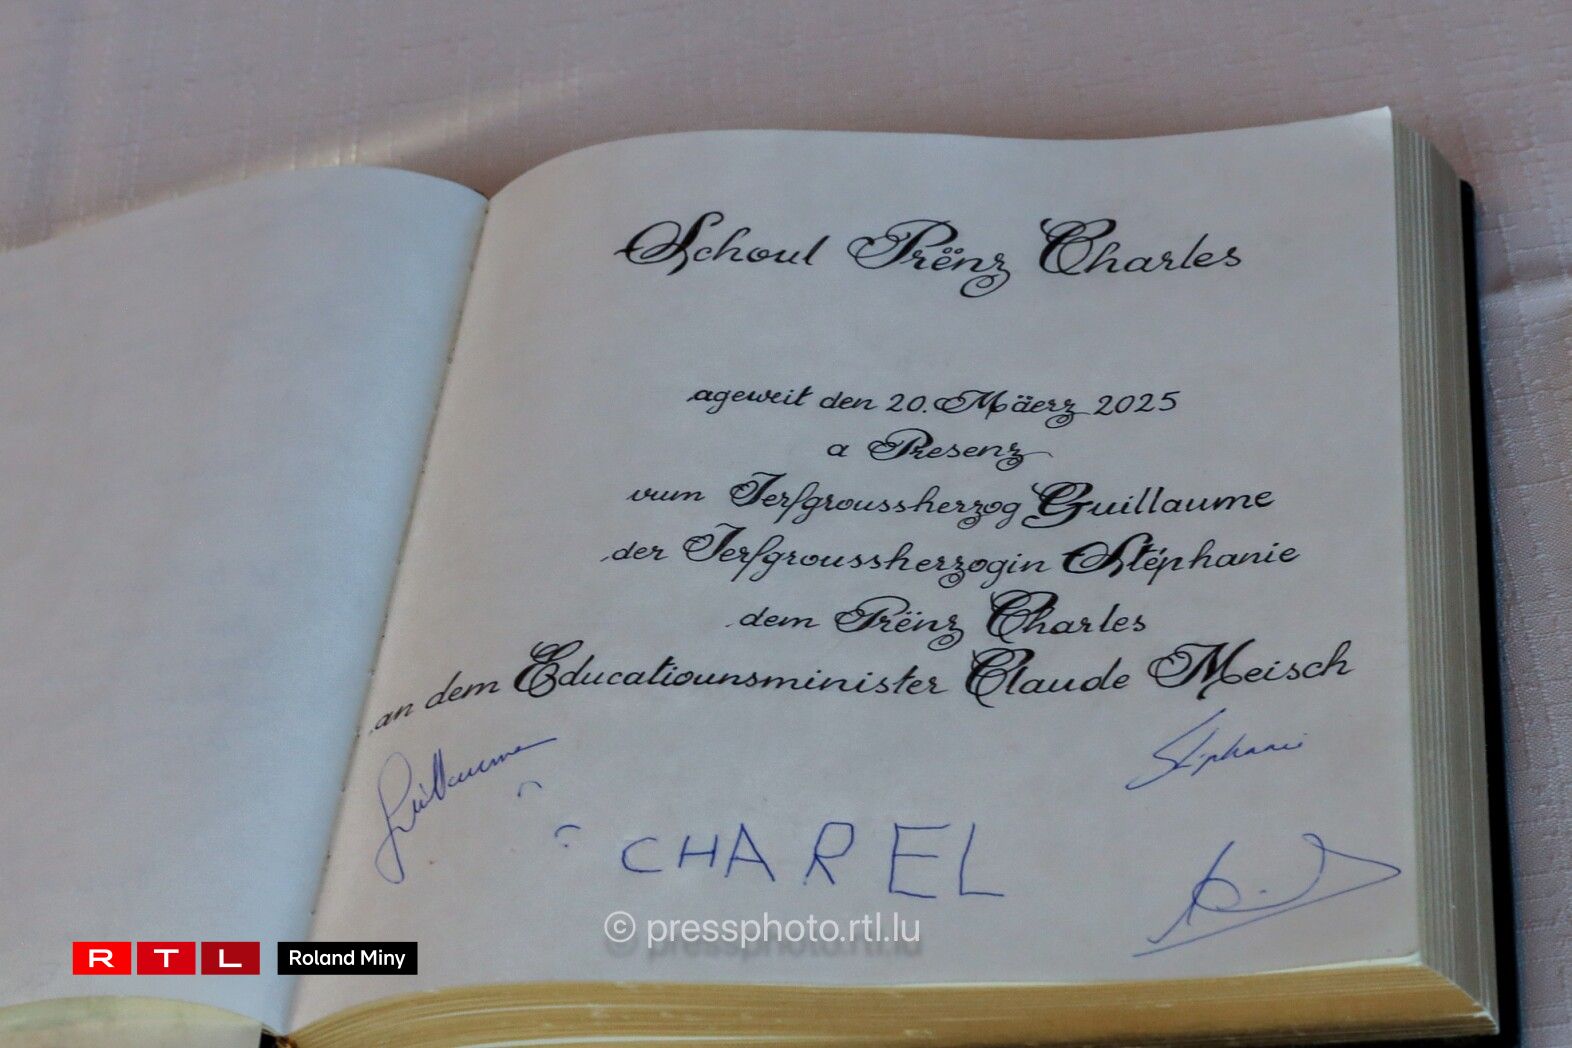 Schoul Prënz Charles
ageweit den 20. Mäerz 2025
a Presenz
vum Ierfgroussherzog Guillaume
der Ierfgroussherzogin Stéphanie
dem Prënz Charles
an dem Educatiounsminister Claude Meisch
Guillaume
Stéphanie
CHAREL
© pressphoto.rtl.lu
RTL Roland Miny